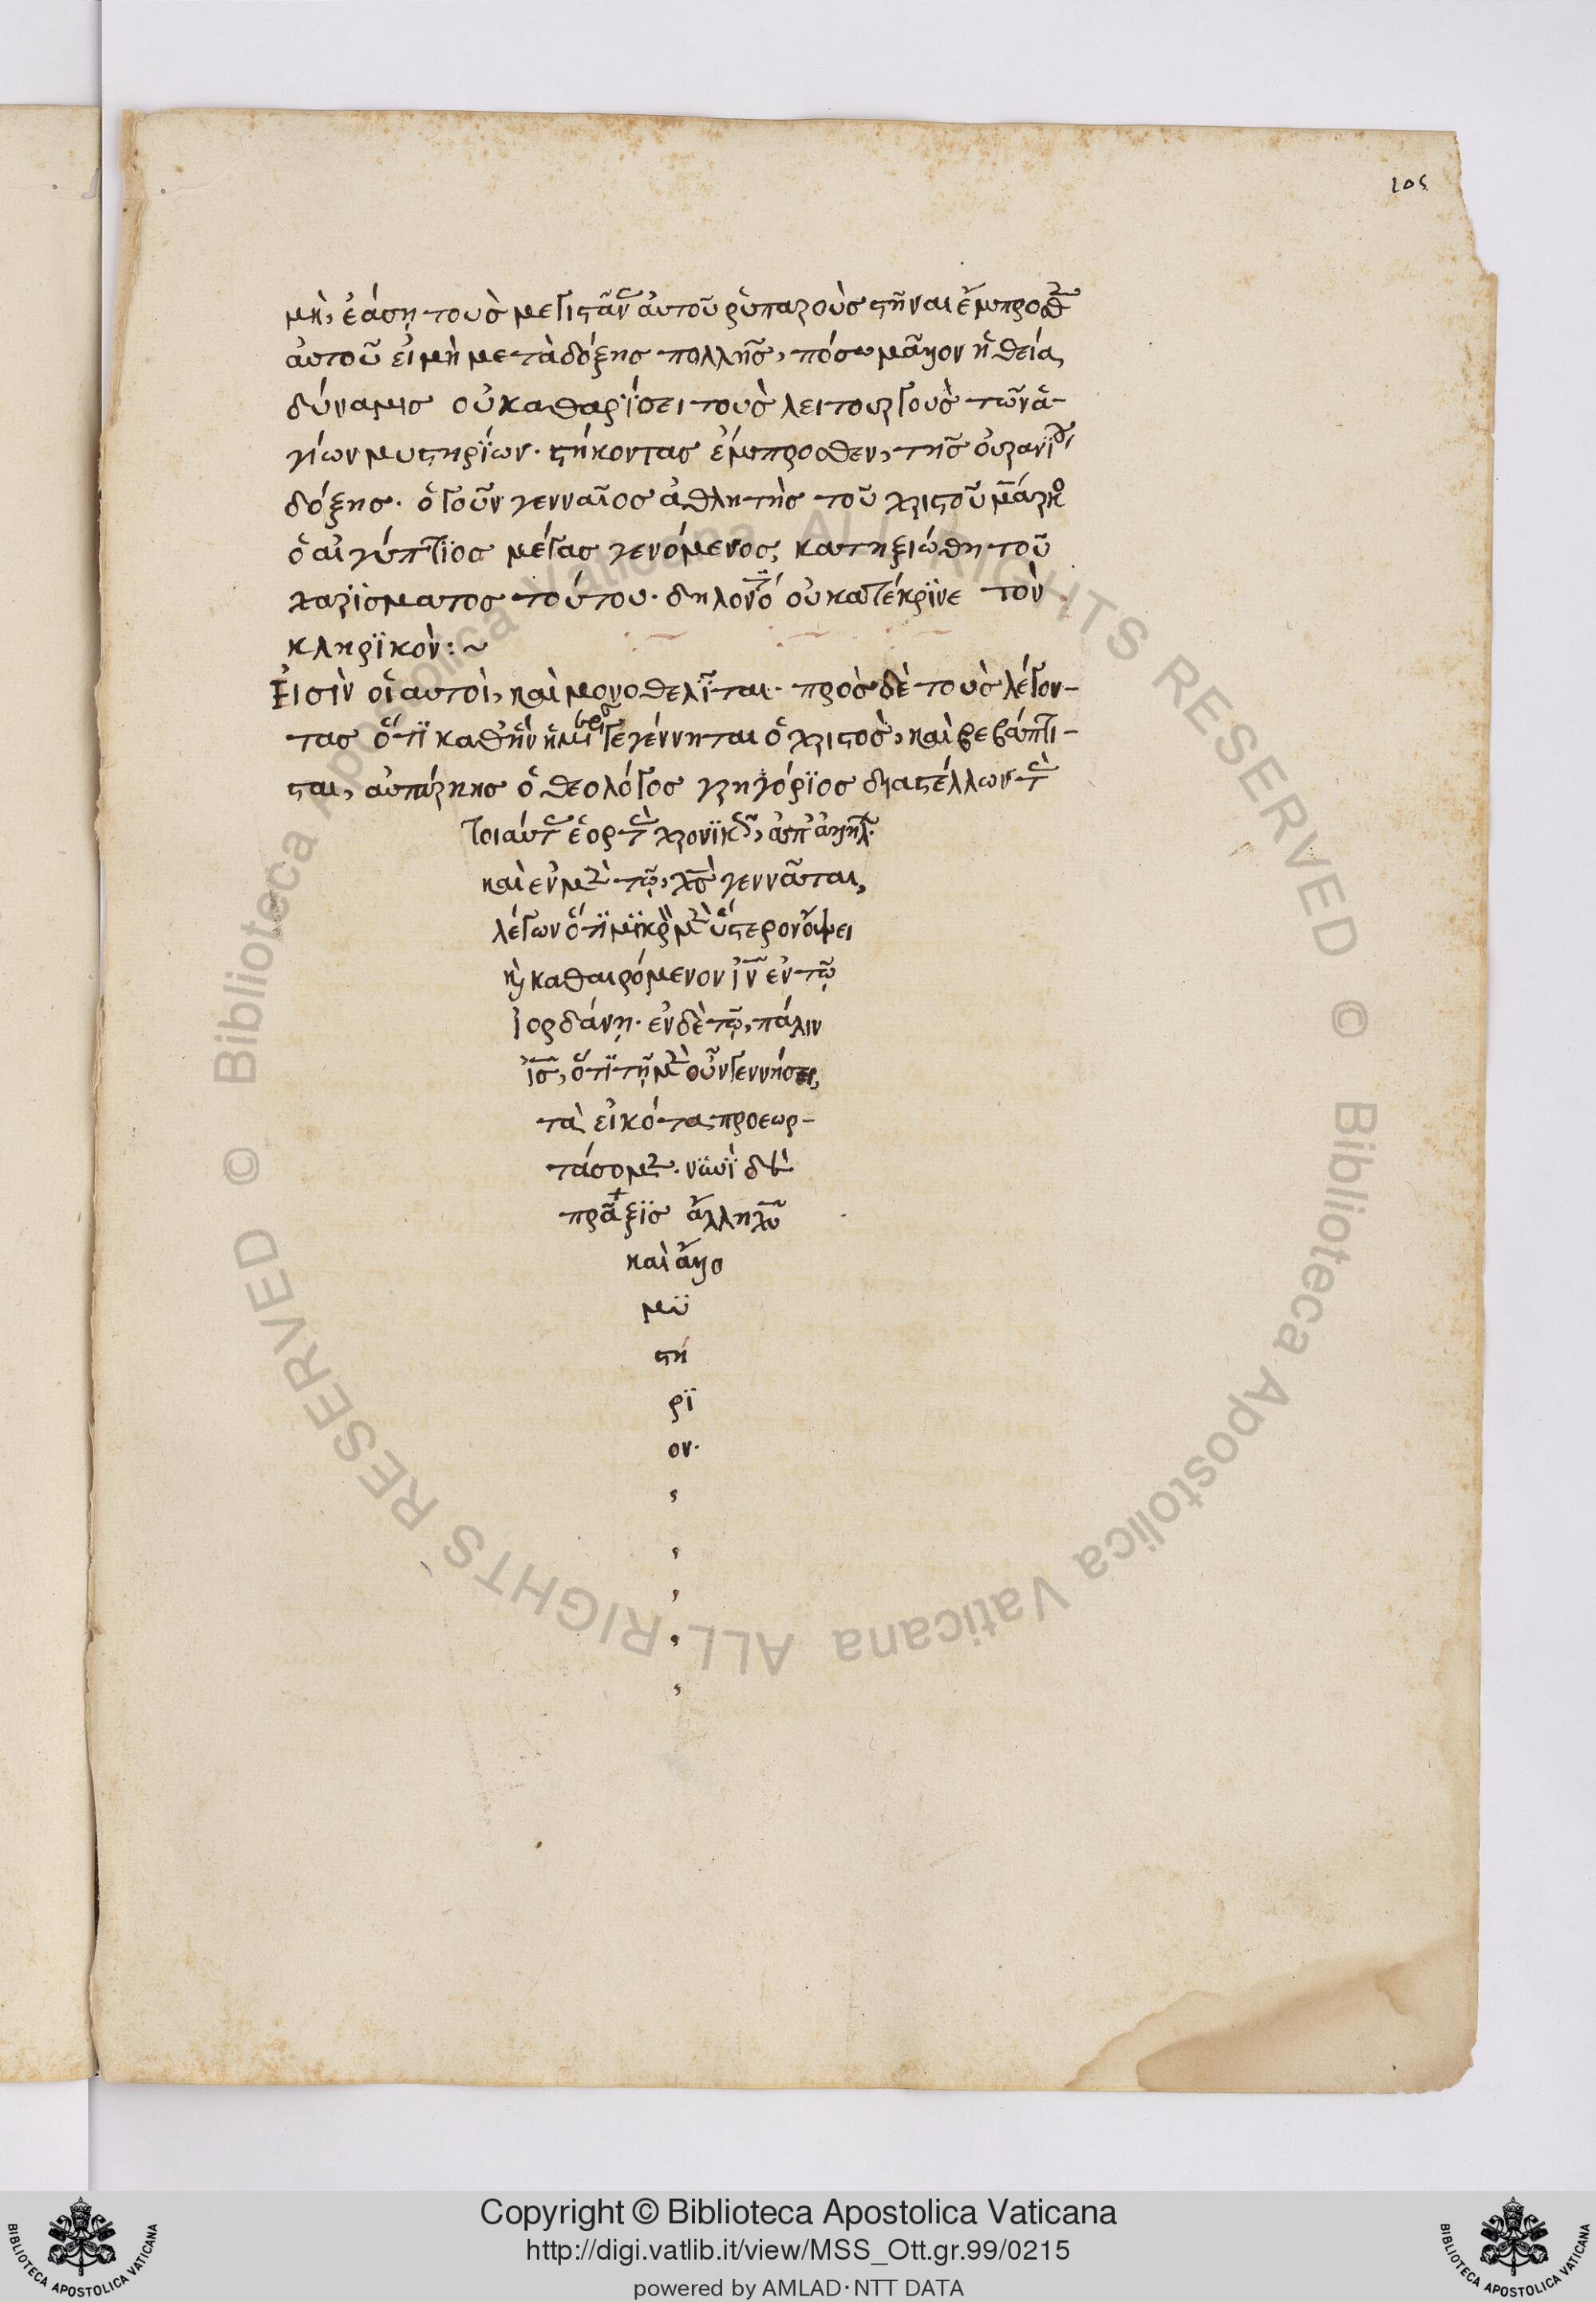 105
μὴ, ἐάση τοὺσ μεγιςᾶν αὐτοῦ ρυπαροὺσ ςῆναι ἔμπροσθ
αὐτοῦ εἰ μὴ μετὰ δόξησ πολλῆσ, πόσω μᾶλλον ἡ θεία
δύναμισ οὐ καθαρΐσει τοὺσ λειτουργοὺσ τῶν ἁ-
γίων μυςηρΐων. ςήκοντασ ἔμπροσθεν, τῆσ οὐρανΐ
δόξησ. ὁ γοῦν γενναῖοσ ἀθλητὴσ τοῦ χριςοῦ μάρκο
ὁ αἰγύπτϊοσ μέγασ γενόμενοσ, κατηξιώθη τοῦ
χαρΐσματοσ τούτου. δηλονό οὐ κατέκρϊνε τὸν
κληρϊκὸν:~
Εἰσὶν οἱ αυτοὶ, καὶ μονοθελῖται. πρὸσ δὲ τοὺσ λέγον-
τασ ὅτϊ καθ ἣν ἡμέ γεγέννηται ὁ χριςοσ, καὶ βεβάπτι-
ςαι, αὐτάρκησ ὁ θεολόγοσ γρηγόρϊοσ διαςέλλων τ
τοιαύτ ἑορτ χρονϊκ, ἀπ ἀλλήλ.
καὶ ἐν μ τῶ, χσ γεννᾶται,
λέγων ὅτϊ μϊκρ μ ὕςερον ὄψει
κ καθαιρόμενον ιν ἐν τῶ
Ἰορδάνη. ἐν δὲ τῶ, πάλιν
ισ, ὅτϊ τῆ μ οὖν γεννήσει,
τὰ εἰκότα προεωρ-
τάσομ. νϋνὶ δὲ
πρᾶξϊσ ἄλλη
καὶ ἄλλο
μϋ
ςή
ρϊ
ον.
Copyright © Biblioteca Apostolica Vaticana
http://digi.vatlib.it/view/MSS_Ott.gr.99/0215
powered by AMLAD·NTT DATA
© Biblioteca Apostolica Vaticana ALL RIGHTS RESERVED
© Biblioteca Apostolica Vaticana ALL RIGHTS RESERVED
BIBLIOTECA APOSTOLICA VATICANA
BIBLIOTECA APOSTOLICA VATICANA